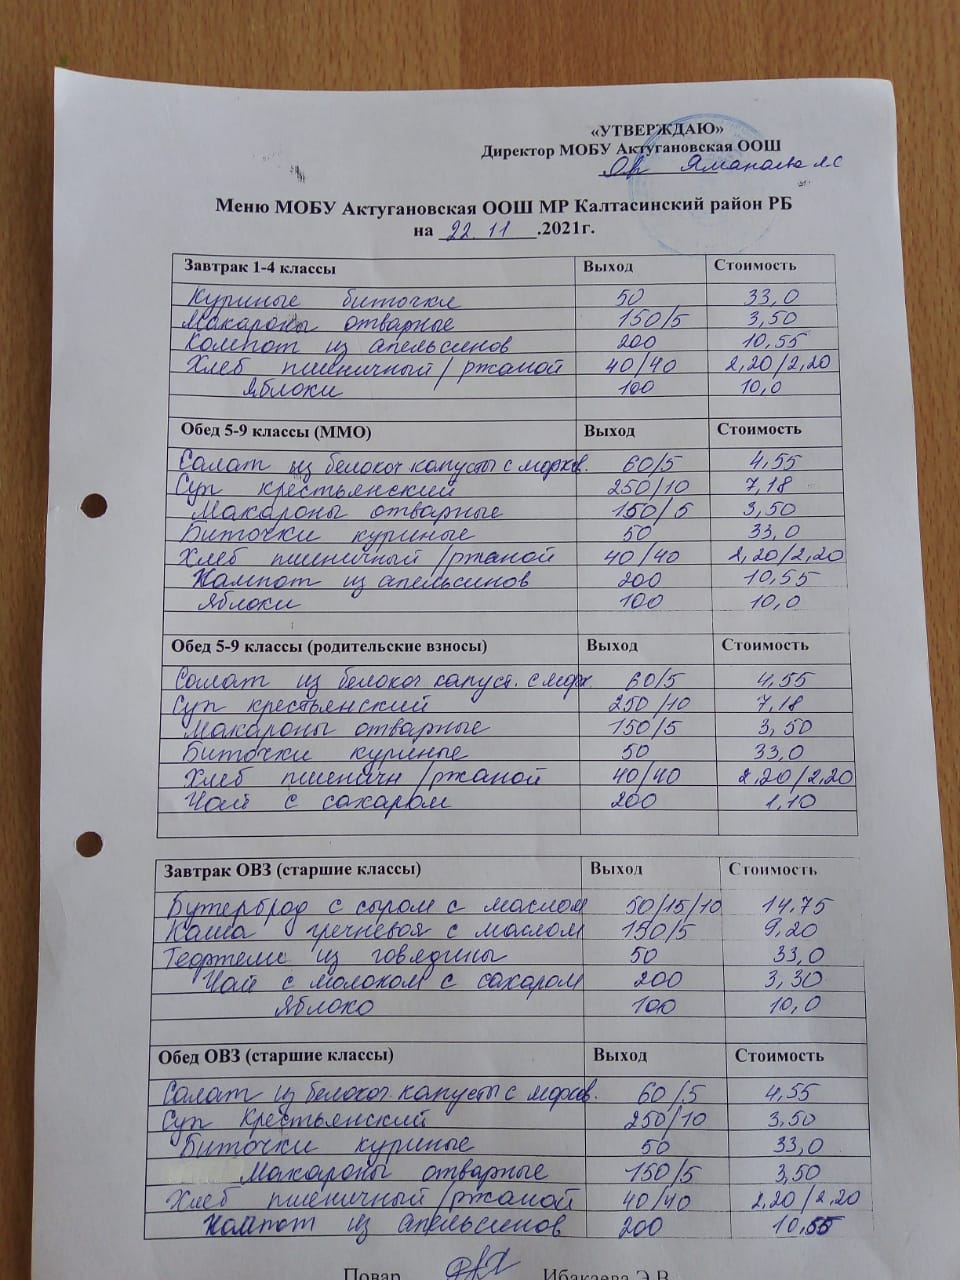 «УТВЕРЖДАЮ»
Директор МОБУ Актугановская ООШ
Яманаева Л С
Меню МОБУ Актугановская ООШ МР Калтасинский район РБ
на 22. 11 .2021г.
Завтрак 1-4 классы Выход Стоимость
Куриные биточки 50 33,0
Макароны отварные 150/5 3,50
Компот из апельсинов 200 10,55
Хлеб пшеничный/ржаной 40/40 2,20/2,20
Яблоки 100 10,0
Обед 5-9 классы (ММО) Выход Стоимость
Салат из белокоч капусты с морков. 60/5 4,55
Суп крестьянский 250/10 7,18
Макароны отварные 150/5 3,50
Биточки куриные 50 33,0
Хлеб пшеничный/ржаной 40/40 2,20/2,20
Компот из апельсинов 200 10,55
Яблоки 100 10,0
Обед 5-9 классы (родительские взносы) Выход Стоимость
Салат из белокоч капуст. с морк. 60/5 4,55
Суп крестьянский 250/10 7,18
Макароны отварные 150/5 3,50
Биточки куриные 50 33,0
Хлеб пшеничн/ржаной 40/40 2,20/2,20
Чай с сахаром 200 1,10
Завтрак ОВЗ (старшие классы) Выход Стоимость
Бутерброд с сыром с маслом 50/15/10 14,75
Каша гречневая с маслом 150/5 9,20
Тефтели из говядины 50 33,0
Чай с молоком с сахаром 200 3,30
Яблоко 100 10,0
Обед ОВЗ (старшие классы) Выход Стоимость
Салат из белокоч. капусты с морков. 60/5 4,55
Суп Крестьянский 250/10 3,50
Биточки куриные 50 33,0
Макароны отварные 150/5 3,50
Хлеб пшеничный/ржаной 40/40 2,20/2,20
Компот из апельсинов 200 10,55
Повар Ибакаева Э.В.